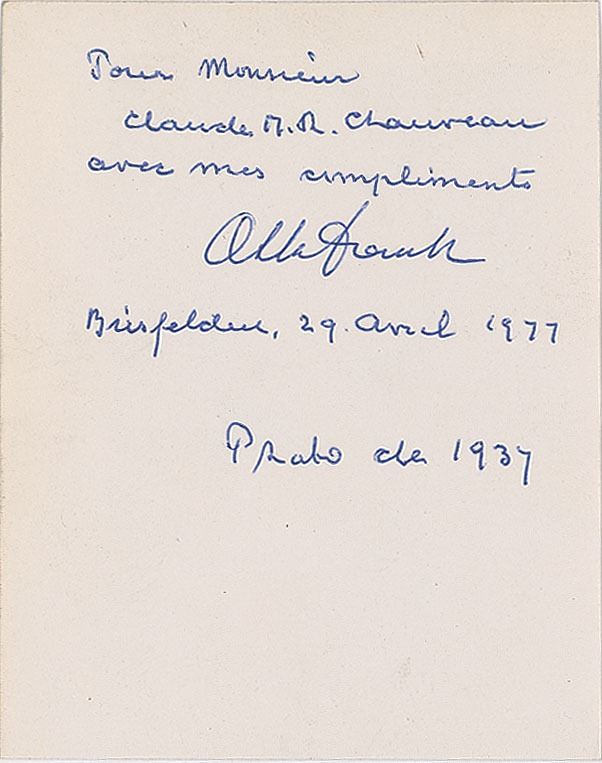 Pour Monsieur
Claude M.R. Chauveau
avec mes compliments
Otto Frank
Birsfelden, 29. Avril 1977
Photo de 1937